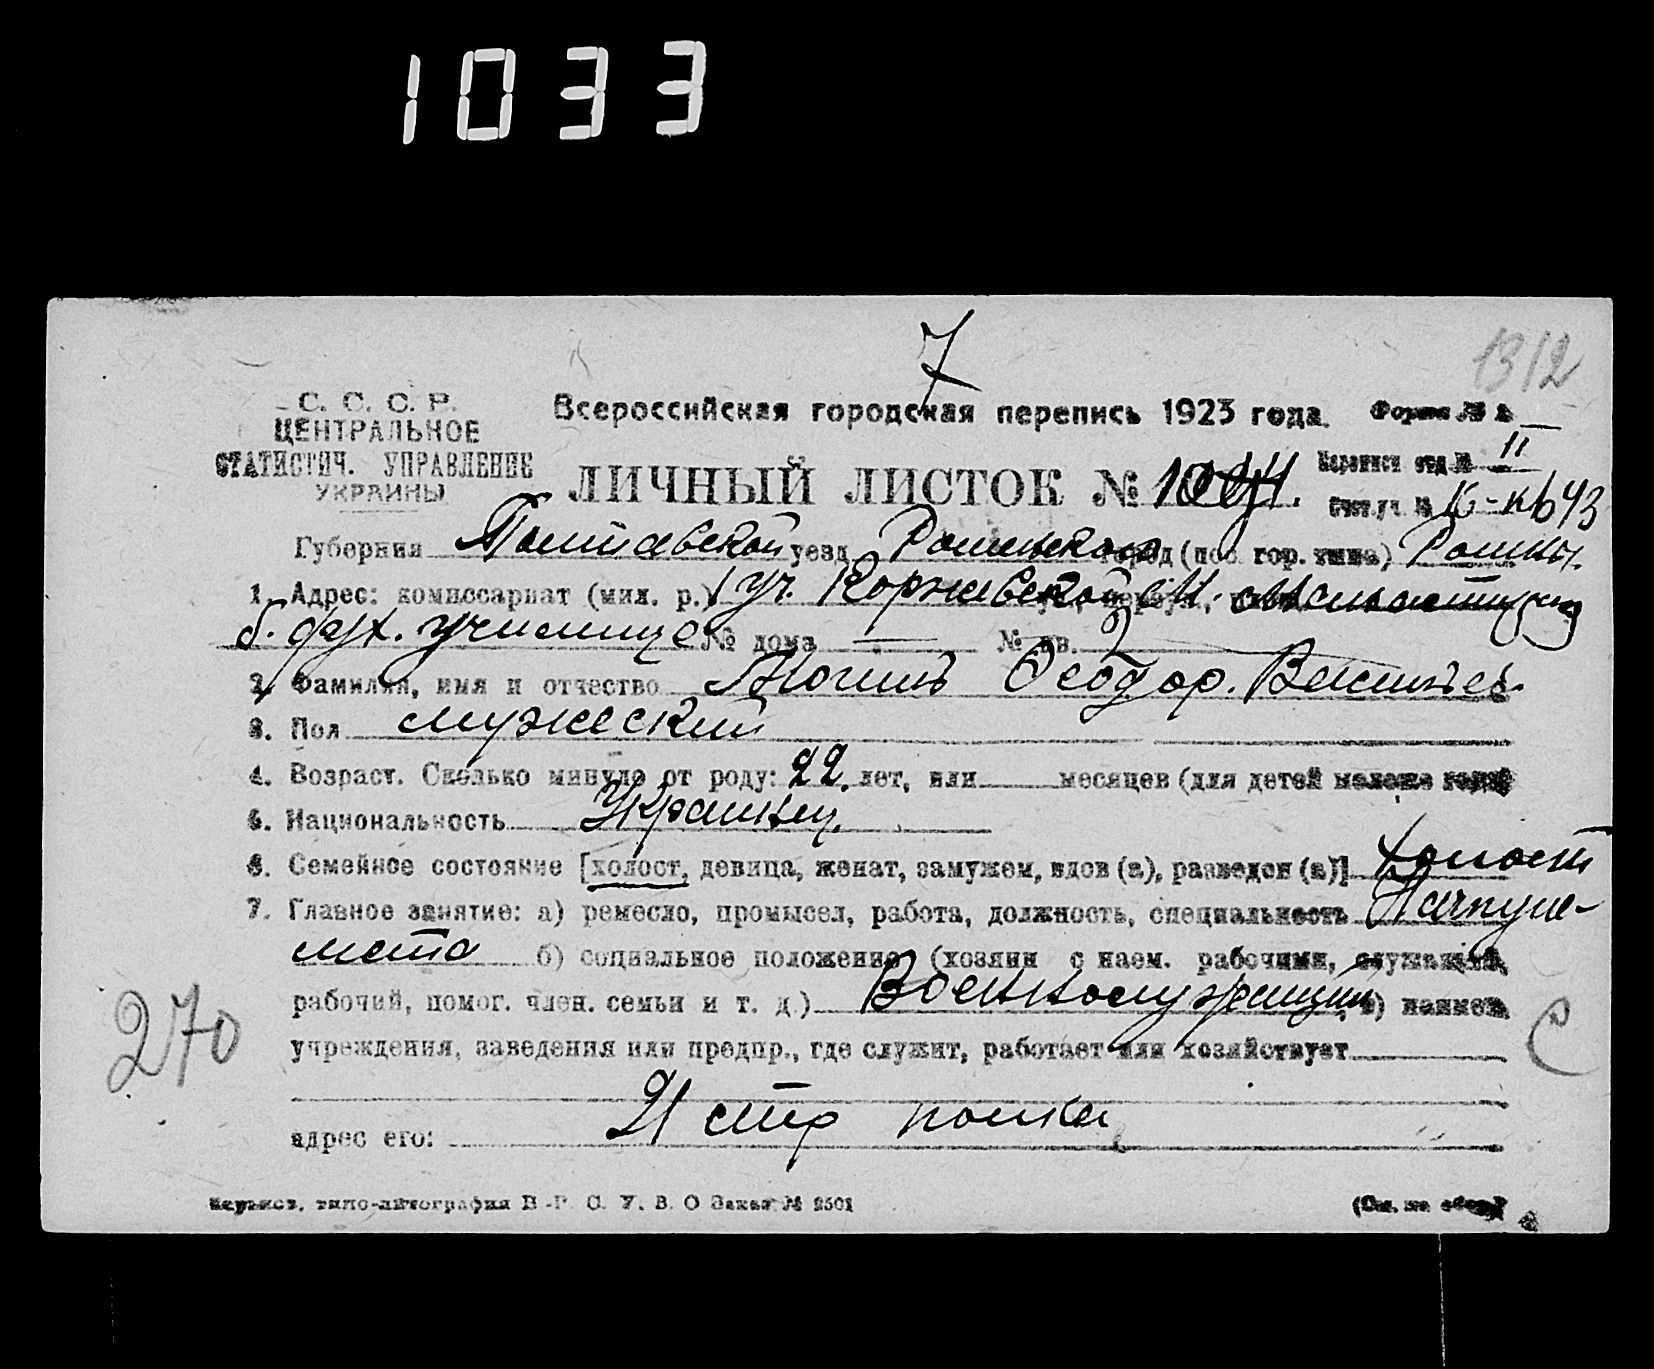 1033
7
1312
С. С. С. Р.
ЦЕНТРАЛЬНОЕ
СТАТИСТИЧ. УПРАВЛЕНИЕ
УКРАИНЫ
Всероссийская городская перепись 1923 года. Форма № 2
ЛИЧНЫЙ ЛИСТОК №
Переписн отд. № II
Счет. уч. №
Губерния Полтавской уезд Роменского город (пос. гор. типа) Ромны.
1. Адрес: комиссариат (мил. р.) 1 уч. Коржевской
б. дух. училище № дома — № кв.
2. Фамилия, имя и отчество Феодор. Васильев.
3. Пол мужеский
4. Возраст. Сколько минуло от роду: 22 лет, или месяцев (для детей моложе года)
5. Национальность Украинец.
6. Семейное состояние [холост, девица, женат, замужем, вдов (а), разведен (а)] холост
7. Главное занятие: а) ремесло, промысел, работа, должность, специальность
б) социальное положение (хозяин с наем. рабочими, служащий,
рабочий, помог. член. семьи и т. д.) Военнослужащий в) наимен.
учреждения, заведения или предпр., где служит, работает или хозяйствует
адрес его: 21 стр полка
270
С
типо-литография В.-Р. С. У. В. О Заказ № 2501 (См. на обор.)